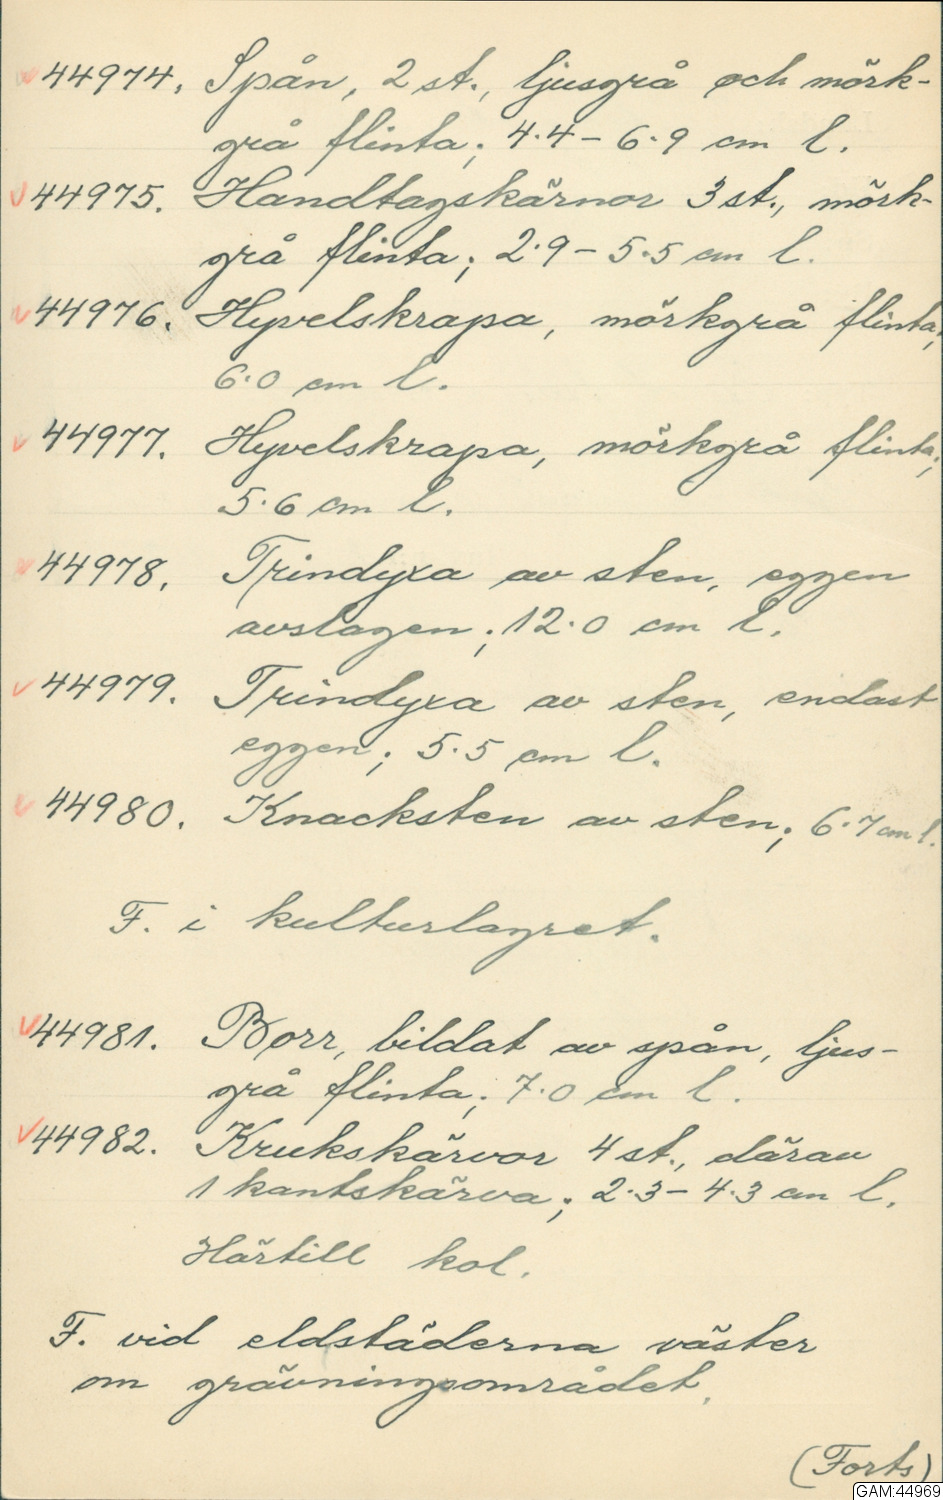 44974. Spån, 2 st., ljusgrå och mörk-
grå flinta; 4.4 - 6.9 cm l.
44975. Handtagskärnor 3 st., mörk-
grå flinta; 2.9 - 5.5 cm l.
44976. Hyvelskrapa, mörkgrå flinta;
6.0 cm l.
44977. Hyvelskrapa, mörkgrå flinta;
5.6 cm l.
44978. Trindyxa av sten, eggen
avslagen; 12.0 cm l.
44979. Trindyxa av sten, endast
eggen; 5.5 cm l.
44980. Knacksten av sten; 6.7 cm l.
F. i kulturlagret.
44981. Borr, bildat av spån, ljus-
grå flinta; 7.0 cm l.
44982. Krukskärvor 4 st., därav
1 kantskärva; 2.3 - 4.3 cm l.
Härtill kol.
F. vid eldstäderna väster
om grävningsområdet.
(Forts)
GAM:44969